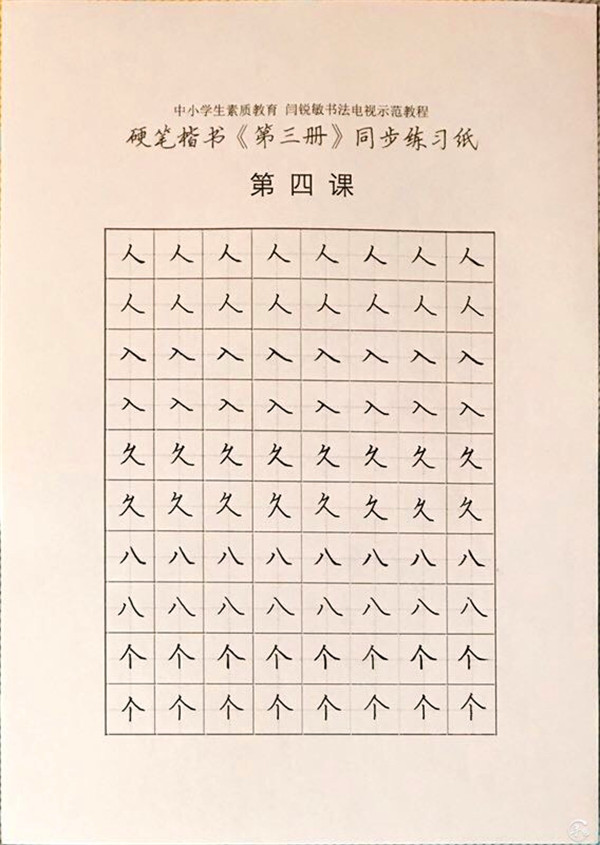 中小学生素质教育 闫锐敏书法电视示范教程
硬笔楷书《第三册》同步练习纸
第四课
人人人人人人人人
人人人人人人人人
入入入入入入入入
入入入入入入入入
久久久久久久久久
久久久久久久久久
八八八八八八八八
八八八八八八八八
个个个个个个个个
个个个个个个个个